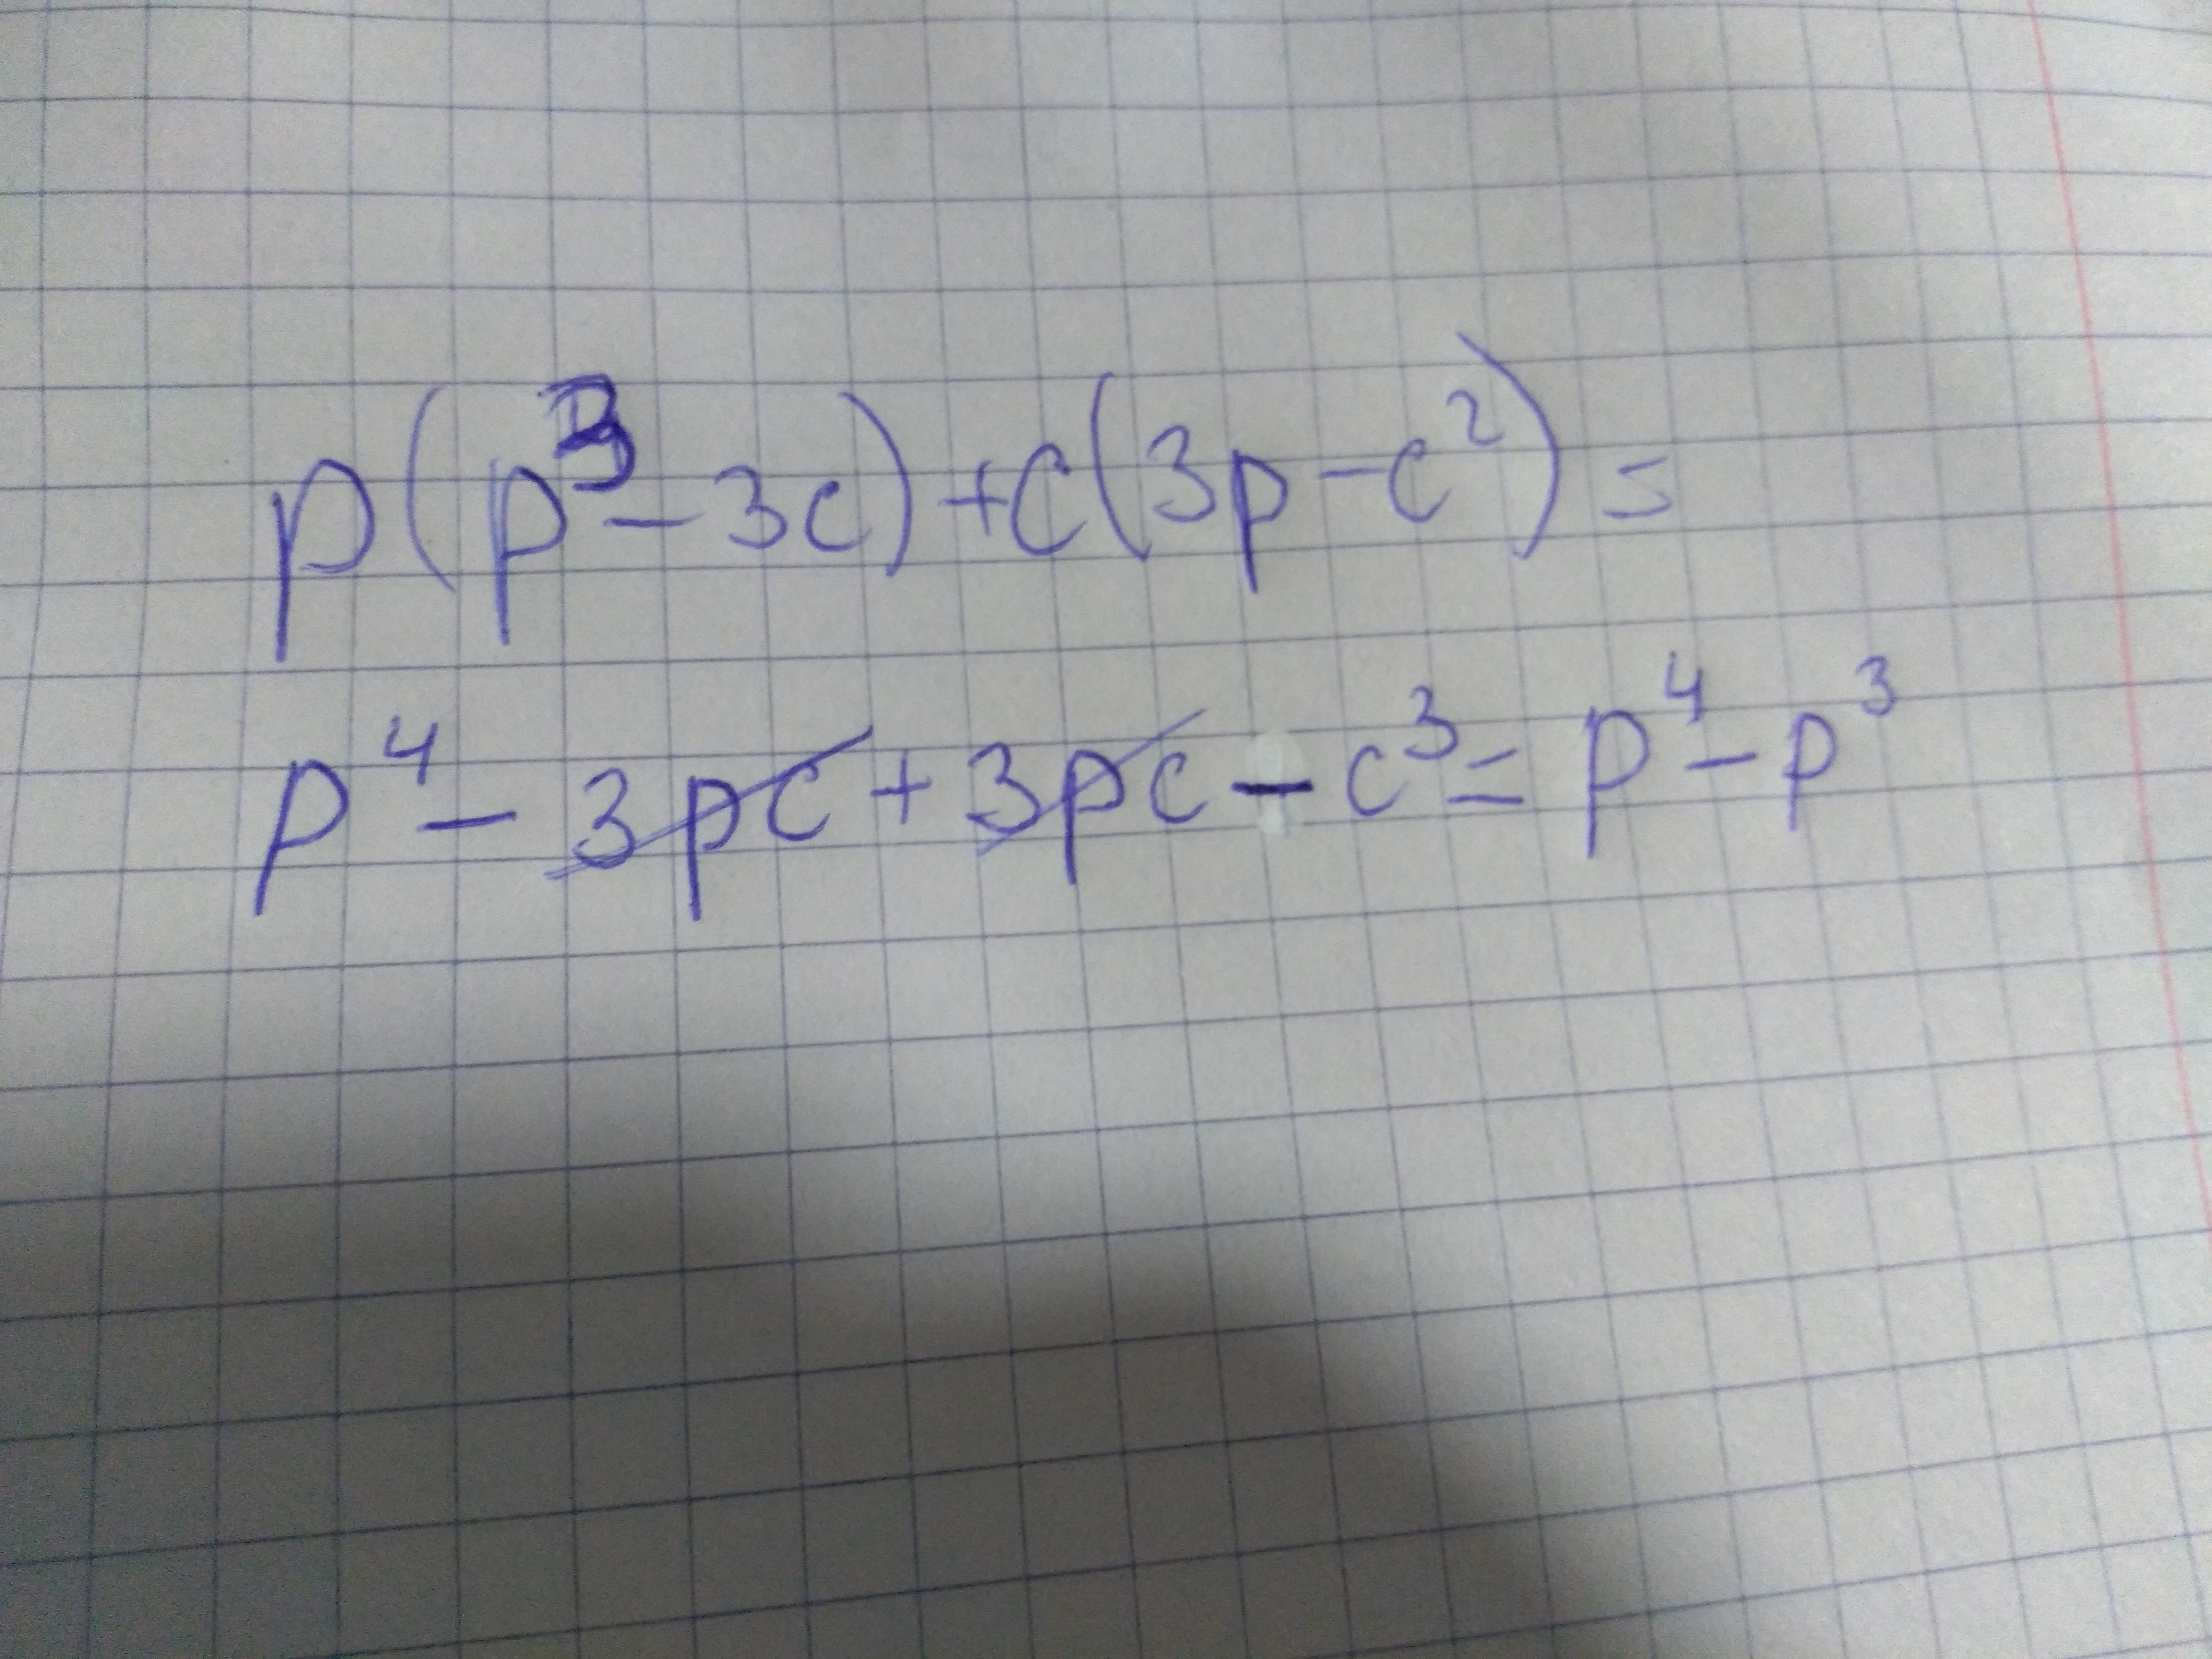 p(p³-3c)+c(3p-c²)=
p⁴-3pc+3pc-c³=p⁴-p³